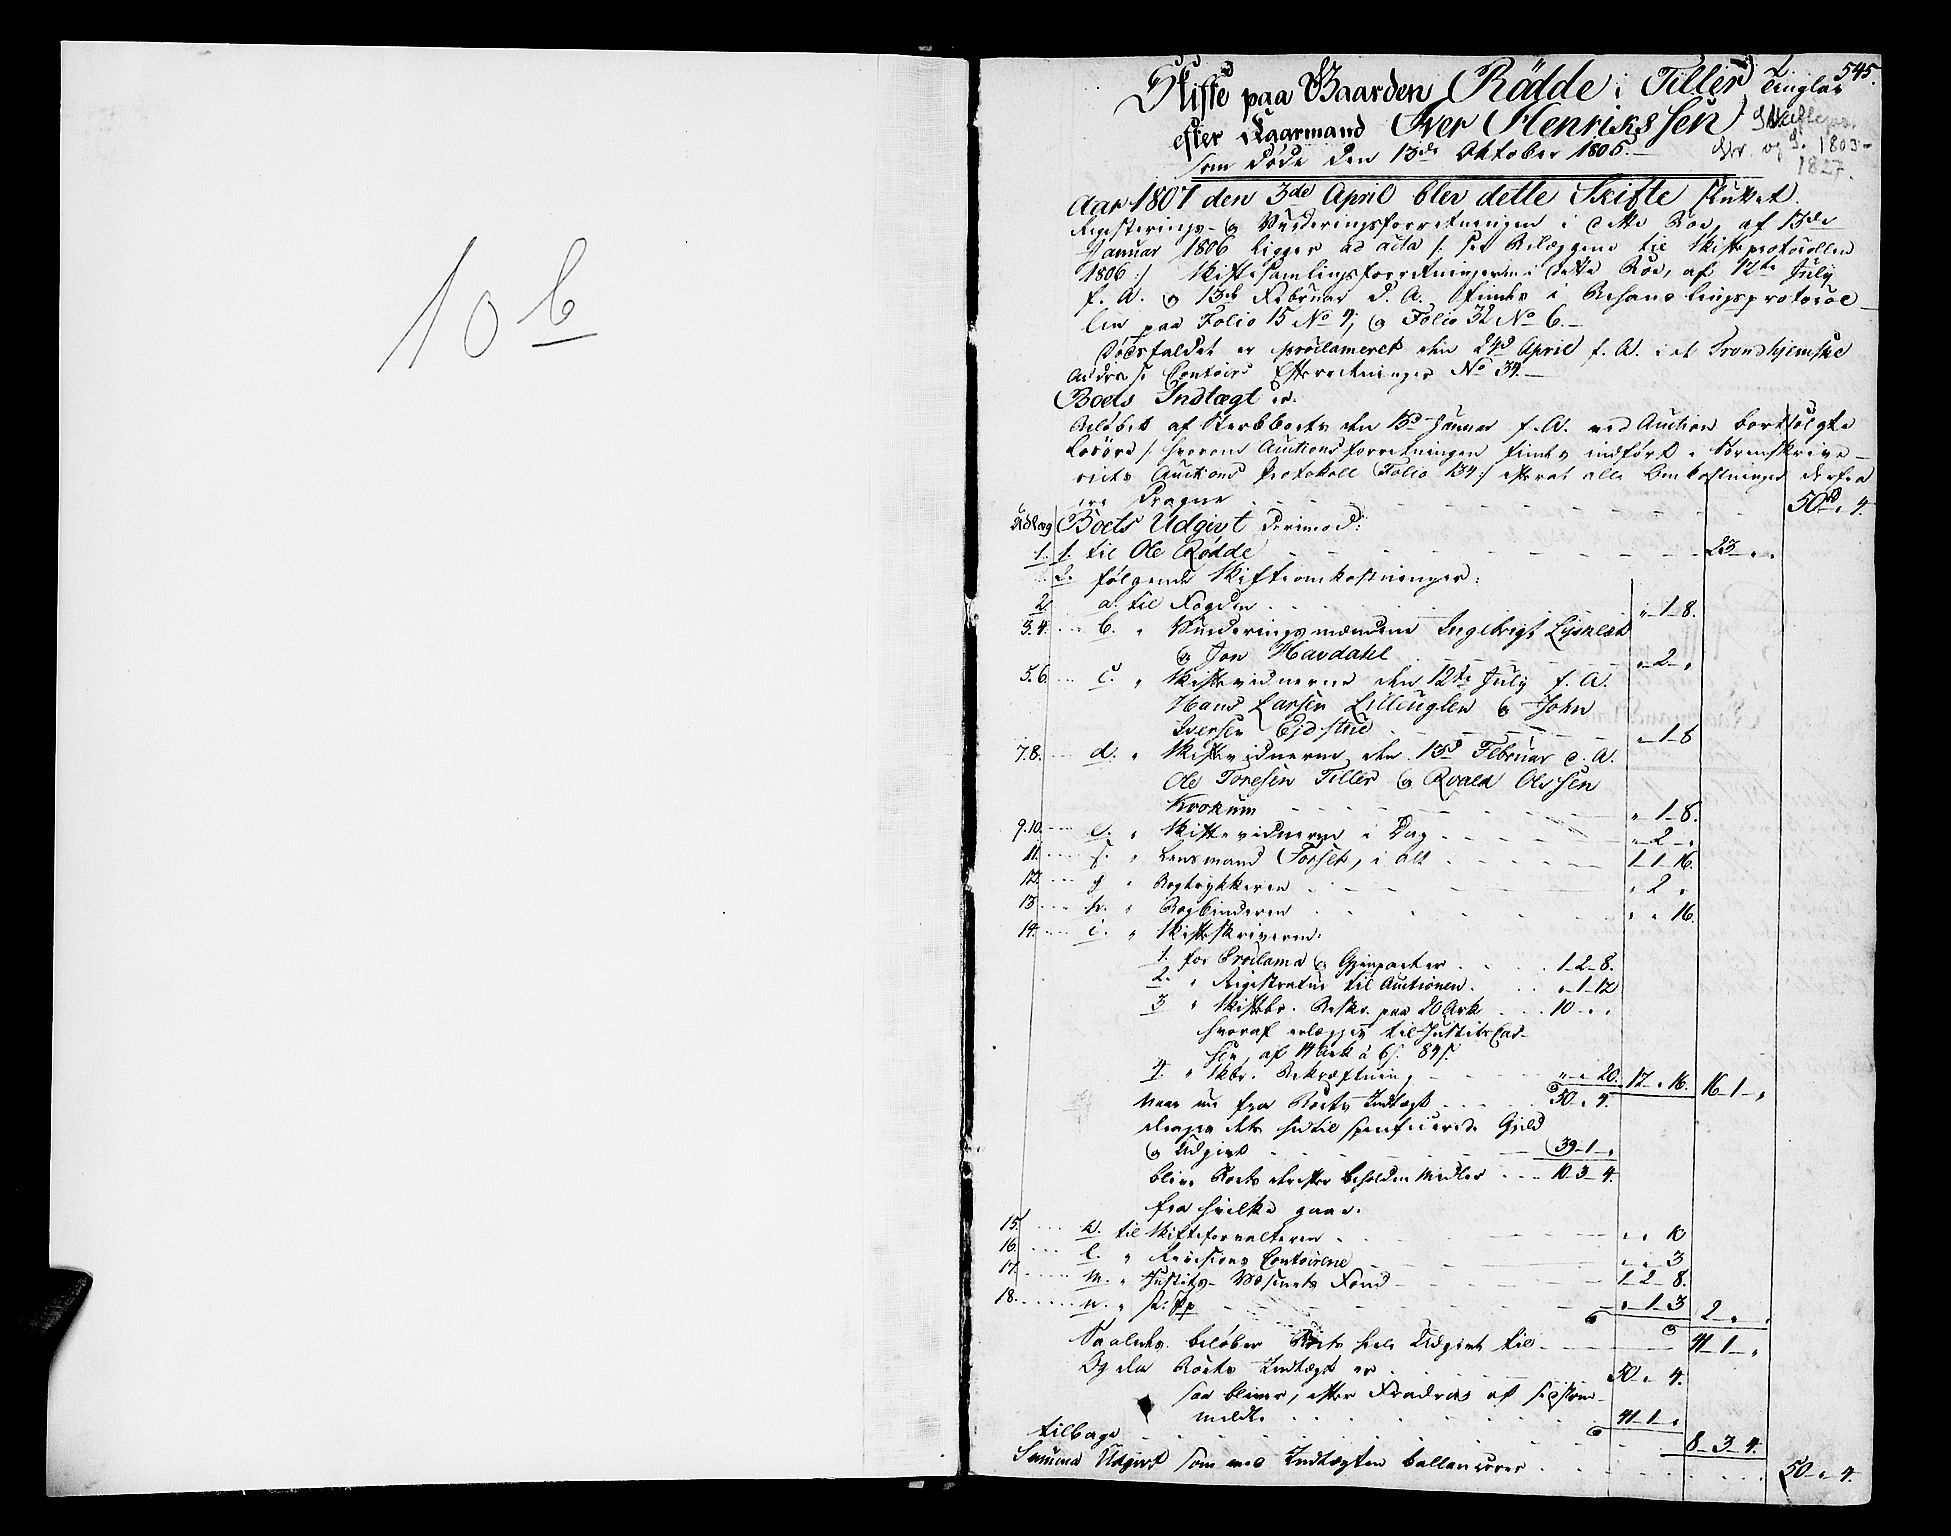 10 b
545.
Skifte paa Gaarden Rødde i Tiller
efter Kaarmand Iver Henrikssen
som døde den 13de Oktober 1805.
1803-
1827.
Aar 1807 den 3de April blev dette Skifte sluttet.
Registerings- og Vurderingsforretningen i dette Boe, af 13de
Januar 1806 ligger ad acta /: see Bilagene til Skifteprotocollen
1806 :/ Skiftesamlingsforretningerne i dette Boe, af 12te July
f. A. og 13de Februar d. A. findes i Behandlingsprotocol-
len paa Folio 15 No 4, og Folio 32 No 6.
Dødsfaldet er proclameret den 22d April f. A. i et Trondhjemske
Adresse Contoirs Efterretninger No 34.
Boets Indtægt er.
Beløbet af Sterbboets den 13d Januar f. A. ved Auction bortsolgte
Løsøre /: hvorom Auctionsforretningen findes indført i Sorenskrive-
riets Auctions Protokoll Folio 134 :/ efterat alle Omkostninger derfra
ere dragne 50rd " 4.
Udlæg Boets Udgivt derimod:
1. 1. til Ole Rødde 23 " "
2. følgende Skifteomkostninger:
2. a. til Fogden " 1 8.
3.4. b. " Vurderingsmændene Ingebrigt
og Jon Havdahl " 2 "
5.6. c. " Skiftevidnerne den 12te July f. A.
Hans Larsen Lilleuglen og John
Iversen " 1 8
7.8. d. " Skiftevidnerne den 13d Februar d. A.
Ole Toresen Tiller og Roald Olssen
Krokum " 1 8.
9.10. e. " Skiftevidnerne i Dag " 2 "
11. f. " Lensmand Forset, i alt 1 1 16.
12. g " Bogtrykkeren " 2 "
13 h. " Bogbinderen " " 16.
14. i. " Skifteskriveren:
1. for Proclama og Gjenparter 1-2-8.
2. " Registratur til Auctionen " 1-12
3 " Skiftebr. Beskr. paa 20 Ark 10 " "
hvoraf erlægges til Justits Cas-
sen, af 14 Ark a 6 s. 84 s.
4. " Skbr. Bekræftning " " 20. 12 " 16. 16-1-"
Naar nu fra Boets Indtægt 50 " 4.
drages det hertil specificerede Gjeld
og Udgivt 39-1-"
bliver Boets derefter beholden Midler 10-3-4.
fra hvilke gaar.
15. k. til Skifteforvalteren " " 10
16. l. " Revisions Contoirene " " 3
17. m. " Justits-Væsenets Fond 1 2 8.
18. n. " " 1 3 2 " "
Saaledes beløber Boets hele Udgivt til 41-1-"
Og da Boets Indtægt er 50 " 4.
saa bliver, efter Fradrag af sidstom-
meldte 41-1-"
tilbage 8-3-4.
Summa Udgivt som med Indtægten ballancerer 50 " 4.